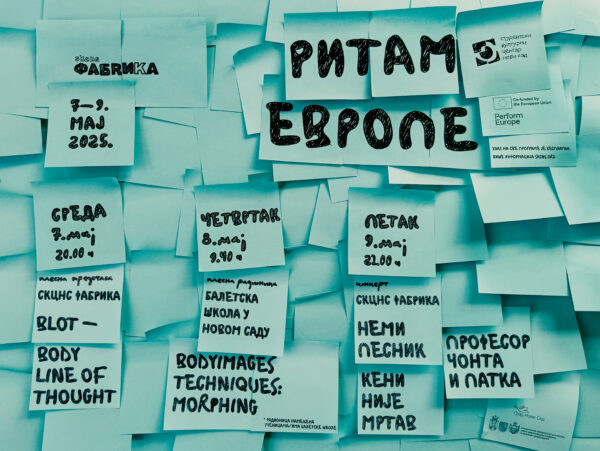 skcns
ФАБRИКА
7–9.
МАЈ
2025.
РИТАМ
ЕВРОПЕ
СТУДЕНТСКИ
КУЛТУРНИ
ЦЕНТАР
НОВИ САД
Co-funded by
the European Union
Perform
Europe
УЛАЗ НА СВЕ ПРОГРАМЕ ЈЕ БЕСПЛАТАН.
ВИШЕ ИНФОРМАЦИЈА SKCNS.ORG
СРЕДА
7. мај
20.00 ч
плесна представа
СКЦНС ФАБРИКА
BLOT –
BODY
LINE OF
THOUGHT
ЧЕТВРТАК
8. мај
9.40 ч
плесна радионица
БАЛЕТСКА
ШКОЛА У
НОВОМ САДУ
BODYIMAGES
TECHNIQUES:
MORPHING
* РАДИОНИЦА НАМЕЊЕНА
УЧЕНИЦАМА/ИМА БАЛЕТСКЕ ШКОЛЕ
ПЕТАК
9. мај
21.00 ч
концерт
СКЦНС ФАБРИКА
НЕМИ
ПЕСНИК
КЕНИ
НИЈЕ
МРТАВ
ПРОФЕСОР
ЧОНТА
И ПАТКА